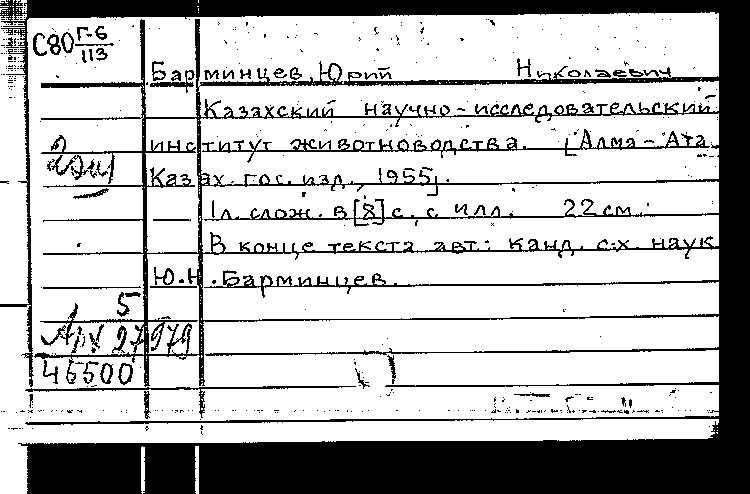 С80 Г-6/113
Барминцев, Юрий Николаевич
Казахский научно-исследовательский
институт животноводства. [Алма-Ата
Казах. гос. изд., 1955].
1л. слож. в [8] с., с илл. 22 см.
В конце текста авт.: канд. с.-х. наук
Ю.Н. Барминцев.
2экз
5
Арх 27979
46500